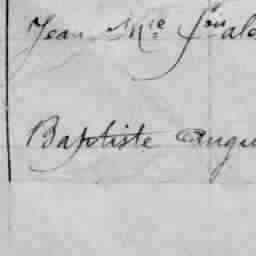 Jean Mie
Baptiste Augu